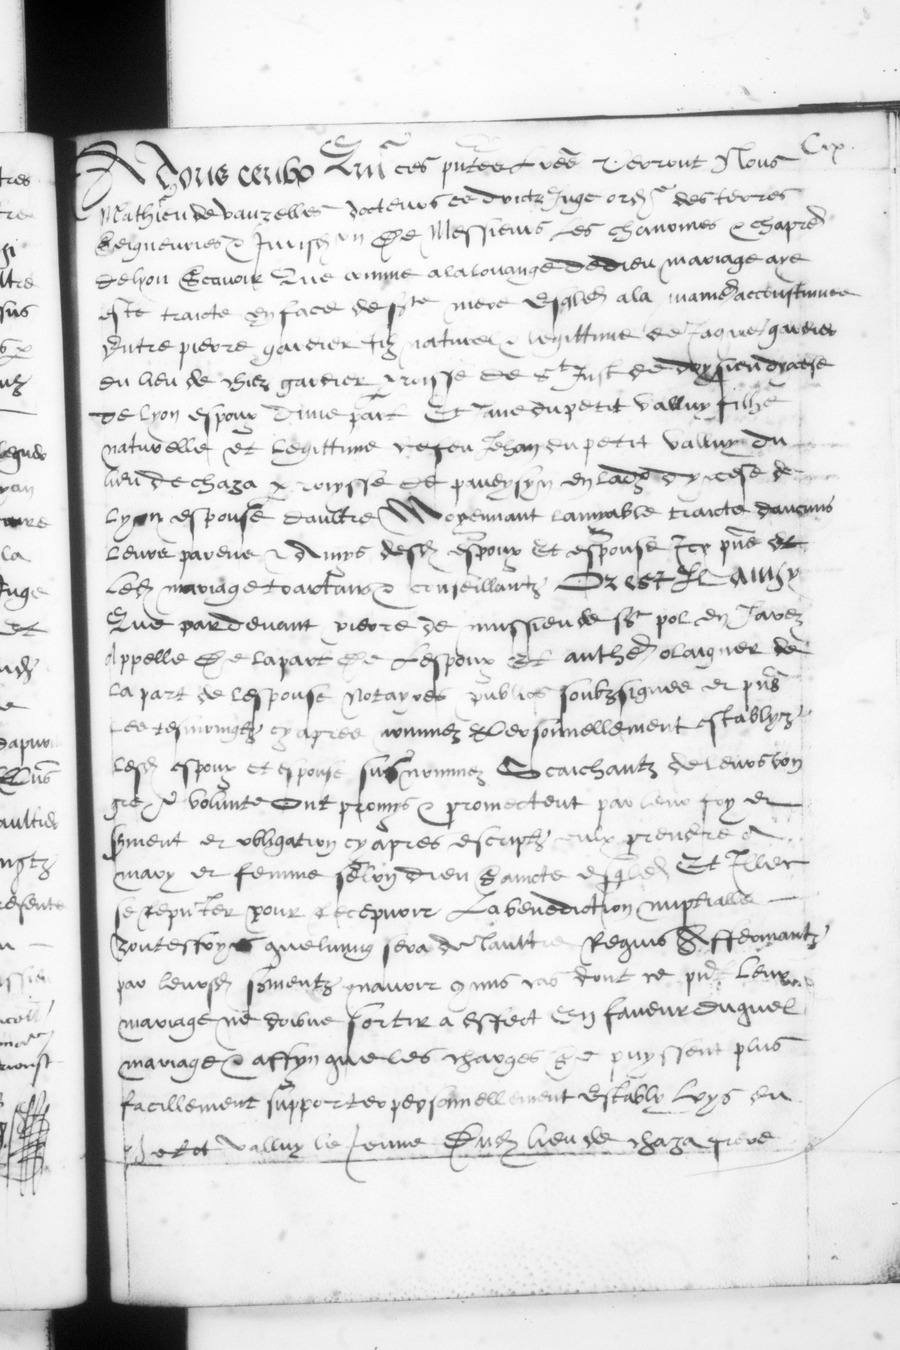 Cix
A Tous ceulx Qui ces pntes Lres Verront Nous
Mathieu de Vauzelles docteurs es droictz Juge ordre des terres
Seigneuries & Jurisdon De Messieurs Les chanoines & chapre
de Lyon Scavoir Que comme a la louange de dieu mariage aye
este traicte en face de ste mere esglize a la maniere accoustumee
Entre pierre gaveier filz naturel & legittime de Jaques gaveier
du lieu de chez gaveier parroisse de St Just de doysieu dyocese
de Lyon espoux d'une part Et du petit Valluy filhe
naturelle et Legittime de feu Jehan du petit Valluy du
lieu de chaza parroysse de paveysyn en lad dyocese de
Lyon espouse d'aultre Moyennant l'amyable traicte d'aucuns
leurs parens & Amys desd espoux Et espouse Icy pns et
Led mariage traictans & conseillantz Or est Il Ainsy
Que par devant pierre de mussieu de St pol en Jarez
Appelle De la part De L'espoux Et anthe olaignier de
la part de l'espouse Notayres publics soubzsignes et pns
Les tesmoingtz cy apres nommez Personnellement establyz
Lesd espoux et espouse susnommez Scaichantz de leurs bon
gre & volunte Ont promys & promectent par leur foy et
srment et obligation cy apres escriptz eulx prendre a
mary et femme selon dieu saincte esglize Et Illec
se repnter pour recepvoir La benediction nuptialle
toutesfoys que l'ung sera de l'aultre Requis Affermantz
par leursd srmentz n'avoir commis cas dont ce pnt Leur
mariage ne doibve sortir a effect En faveur duquel
mariage & affyn que les charges se puyssent plus
facillement supporter personnellement estably Loys du
petit Valluy le Jeune Dud lieu de chaza frere